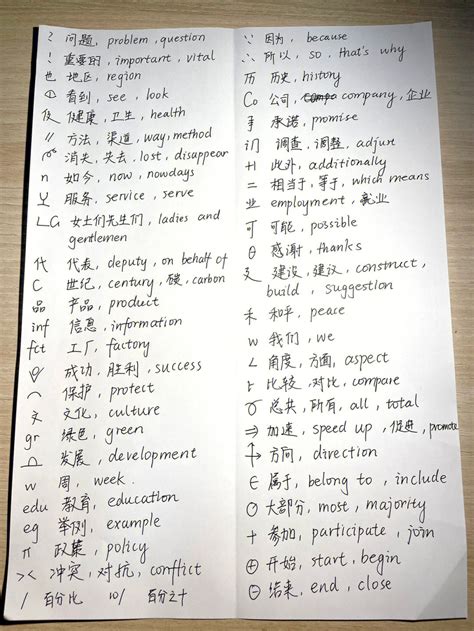 ? 问题, problem, question
! 重要的, important, vital
也 地区, region
看到, see, look
健康, 卫生, health
〃 方法, 渠道, way, method
消失, 失去, lost, disappear
n 如今, now, nowdays
又 服务, service, serve
L G 女士们先生们, ladies and
gentlemen
代 代表, deputy, on behalf of
C 世纪, century, 碳, carbon
品 产品, product
inf 信息, information
fct 工厂, factory
成功, 胜利, success
⌒ 保护, protect
文 文化, culture
gr 绿色, green
发展, development
w 周, week.
edu 教育, education
eg 举例, example
π 政策, policy
>< 冲突, 对抗, conflict
/ 百分比 10/ 百分之十
∵ 因为, because
∴ 所以, so, that's why
历 历史, history
Co 公司, company, 企业
承诺, promise
调查, 调整, adjust
此外, additionally
= 相当于, 等于, which means
业 employment, 就业
可 可能, possible
θ 感谢, thanks
建设, 建议, construct,
build, suggestion
禾 和平, peace
w 我们, we
∠ 角度, 方面, aspect
比较, 对比, compare
总共, 所有, all, total
⇒ 加速, speed up, 促进, promote
方向, direction
∈ 属于, belong to, include
O 大部分, most, majority
+ 参加, participate, join
⊕ 开始, start, begin
⊖ 结束, end, close